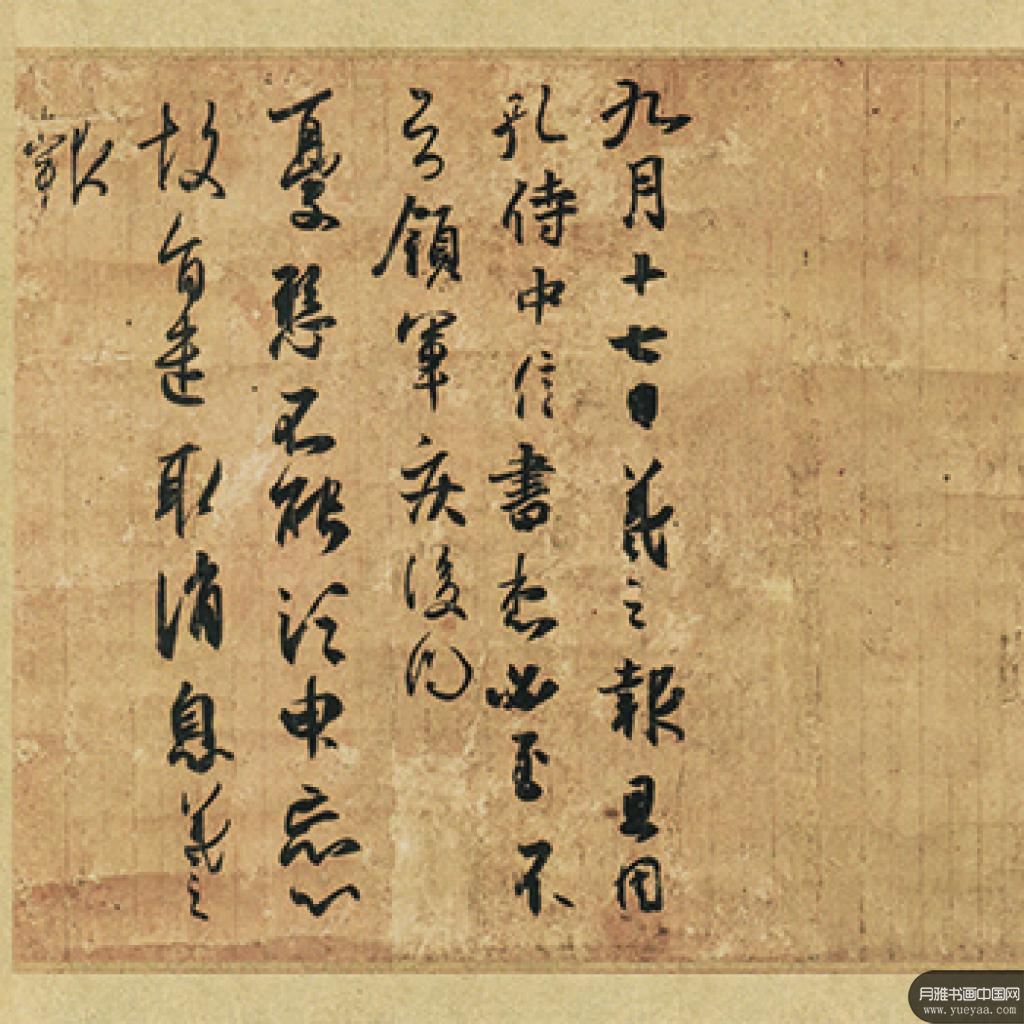 九月十七日羲之報且因
孔侍中信書想必至不
知領軍疾後問
憂懸不能須臾忘心
故旨遣取消息羲之
報
月雅书画中国网
www.yueyaa.com